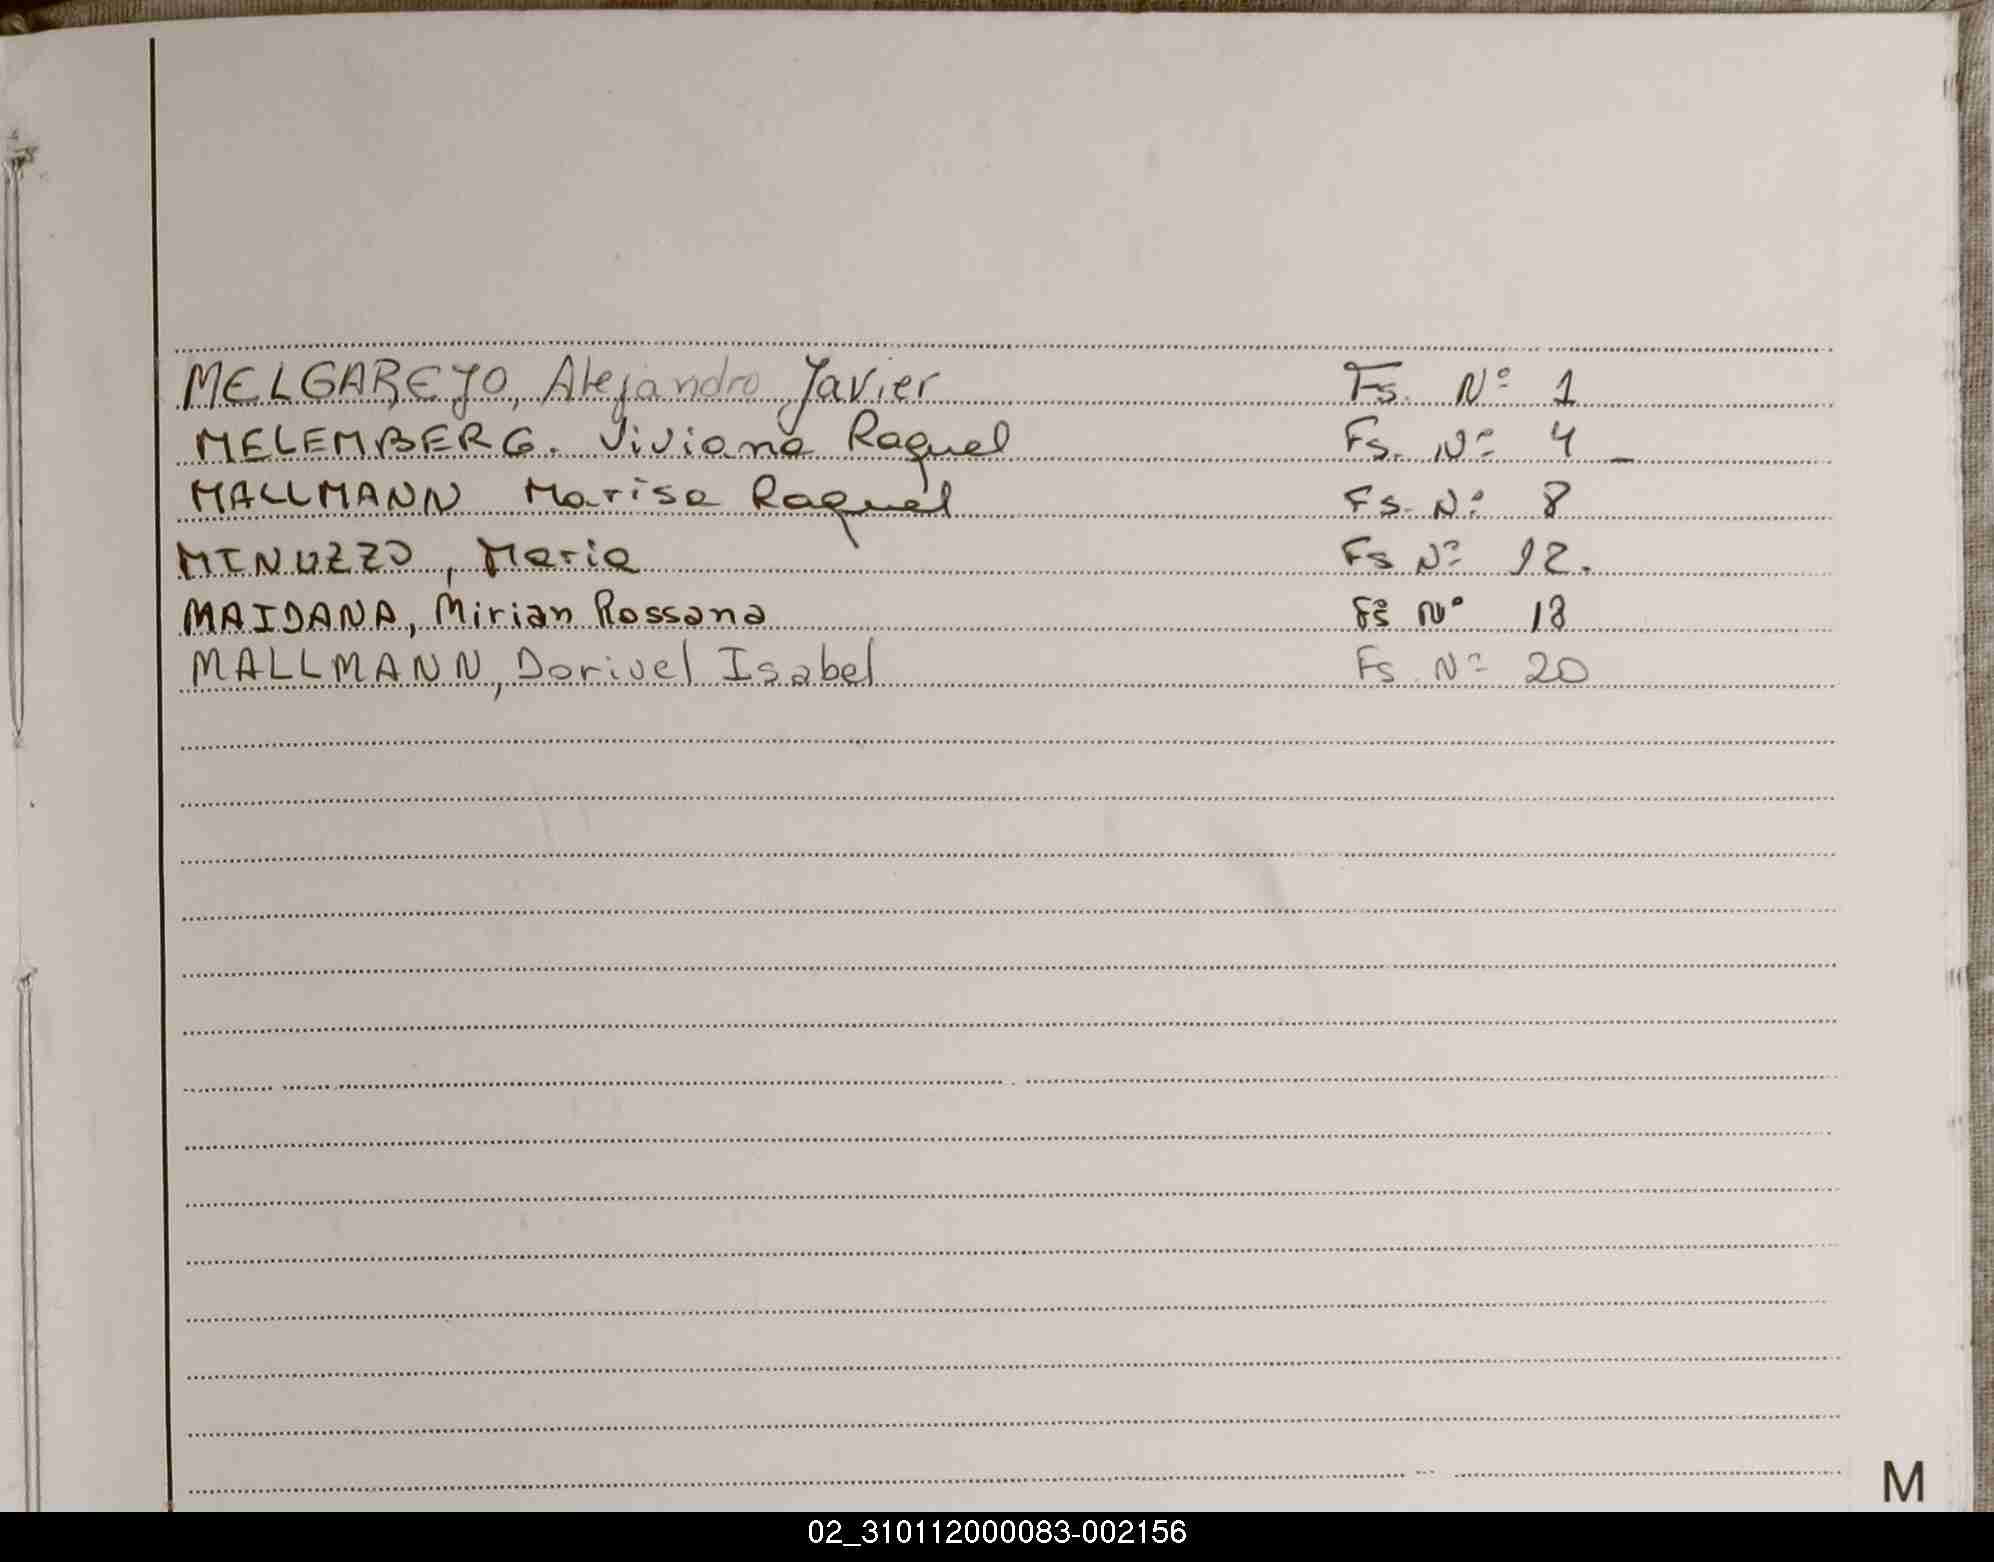 MELGAREJO, Alejandro Javier Fs. Nº 1
MELEMBERG. Viviana Raquel Fs. Nº 4 _
MALLMANN Marisa Raquel Fs. Nº 8
MINUZZO, Maria Fs Nº 12.
MAIDANA, Mirian Rossana Fs Nº 18
MALLMANN, Dorivel Isabel Fs. Nº 20
M
02_310112000083-002156